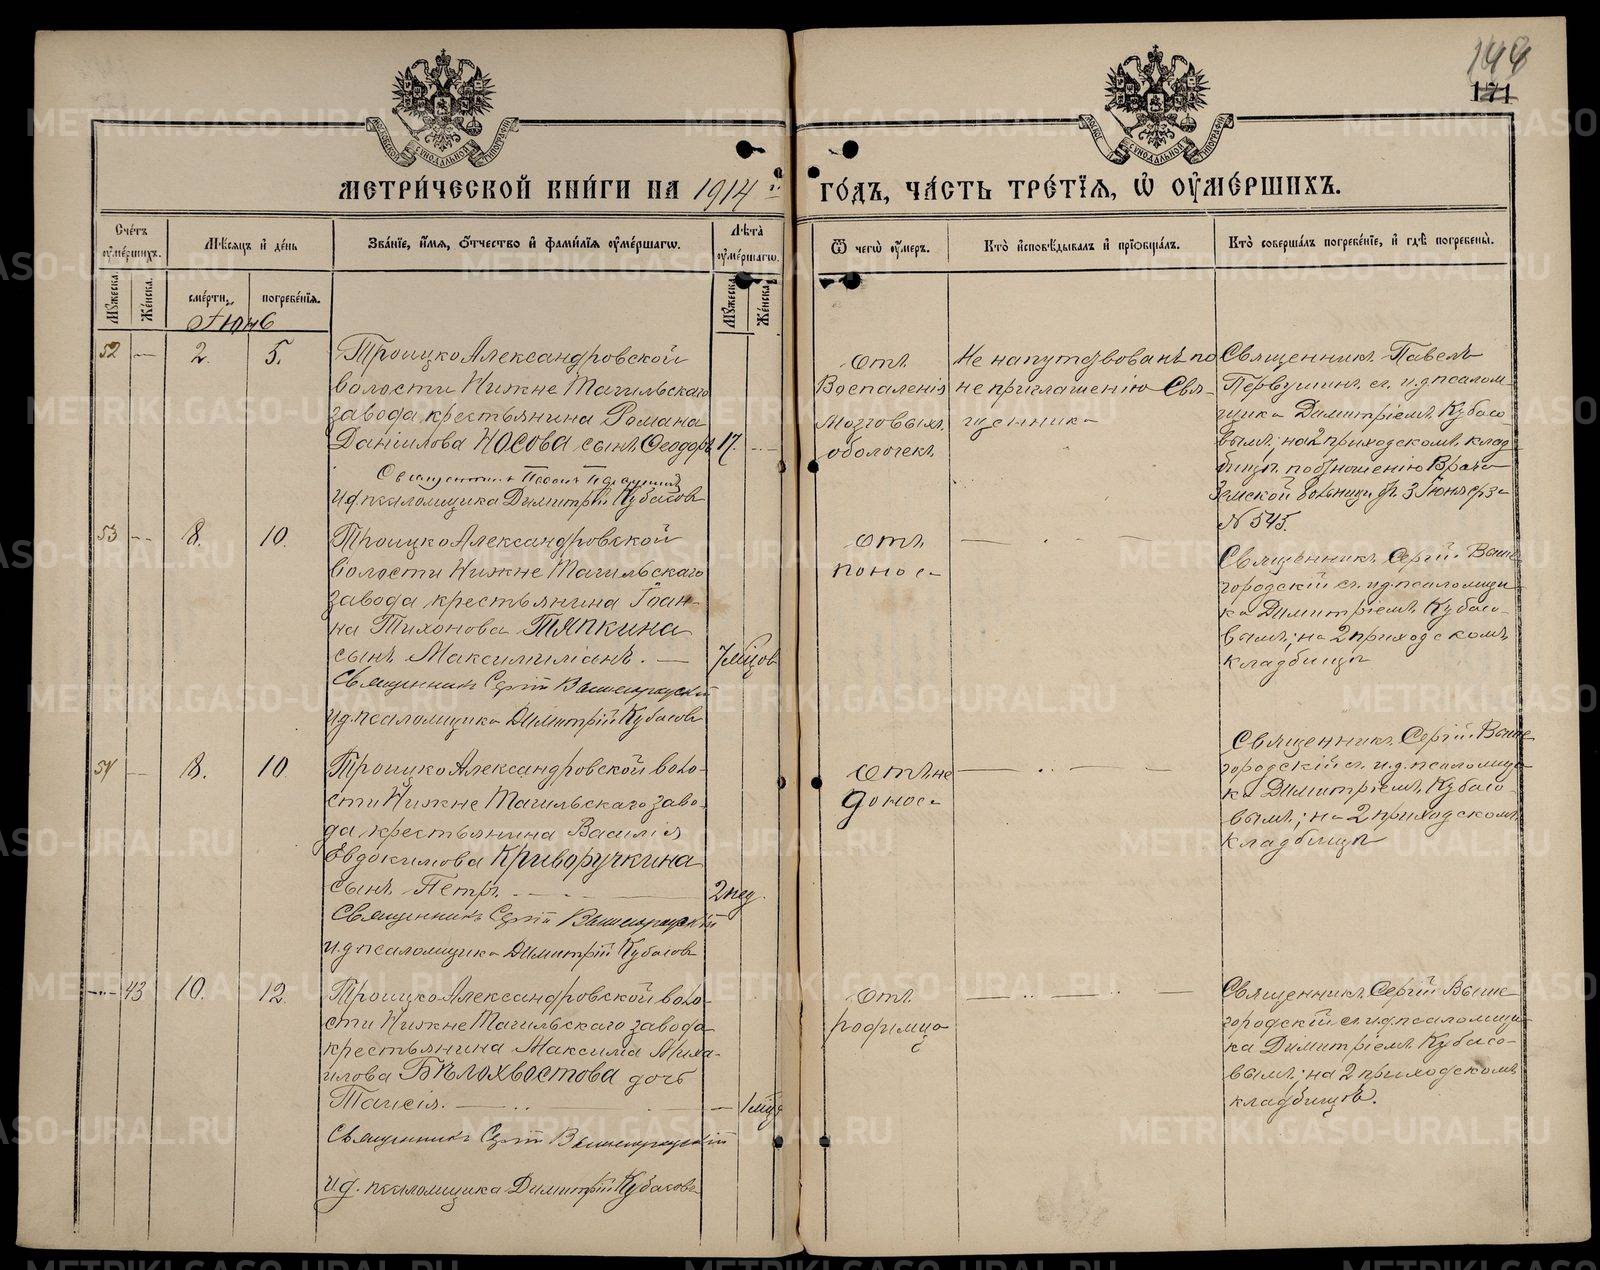 144
171
МЕТРИЧЕСКОЙ КНИГИ НА 1914 г. ГОДЪ, ЧАСТЬ ТРЕТІЯ, Ѽ ОУМЕРШИХЪ.
Счетъ оумершихъ.
Мѣсяцъ и день
Званіе, имя, отчество и фамилія оумершагѡ.
Лѣта оумершагѡ.
Ѿ чегѡ оумеръ.
Кто исповѣдывалъ и пріобщалъ.
Кто совершалъ погребеніе, и гдѣ погребены.
Мужеска. Женска. смерти. погребенія. Мужеска. Женска.
Іюнь
52 — 2. 5.
Троицко Александровской
волости Нижне Тагильскаго
завода, крестьянина Романа
Даніилова Носова сынъ Ѳеодоръ 17. —
Священникъ Павелъ Первушинъ
И.д. псаломщика Димитрій Кубасовъ
отъ
Воспаленія
Мозговыхъ
оболочекъ
Не напутствованъ по
не приглашенію Свя-
щенника
Священникъ Павелъ
Первушинъ съ и.д. псалом-
щика Димитріемъ Кубасо-
вымъ; на 2 приходскомъ клад-
бищѣ по отношенію Врача
Земской больницы отъ 3 Іюня за
№ 545.
53 — 8. 10.
Троицко Александровской
волости Нижне Тагильскаго
завода, крестьянина Іоан-
на Тихонова Тяпкина
сынъ Максимиліанъ. — 7 мѣсцов
Священникъ Сергій Вышегородскій
и.д. псаломщика Димитрій Кубасовъ
отъ
поноса
Священникъ Сергій Выше-
городскій съ и.д. псаломщи-
ка Димитріемъ Кубасо-
вымъ; на 2 приходскомъ
кладбищѣ
54 — 8. 10
Троицко Александровской воло-
сти Нижне Тагильскаго заво-
да, крестьянина Василія
Евдокимова Криворучкина
сынъ Петръ. — 2 нед.
Священникъ Сергій Вышегородскій
и.д. псаломщика Димитрій Кубасовъ
отъ не
доноса
Священникъ Сергій Выше
городскій съ и.д. псаломщи-
ка Димитріемъ Кубасо-
вымъ; на 2 приходскомъ
кладбищѣ
— 43 10. 12.
Троицко Александровской воло-
сти Нижне Тагильскаго завода
крестьянина Максима Миха-
илова Бѣлохвостова дочь
Таисія. — — 1 мѣц
Священникъ Сергій Вышегородскій
и.д. псаломщика Димитрій Кубасовъ
отъ
родимца
Священникъ Сергій Выше-
городскій съ и.д. псаломщи-
ка Димитріемъ Кубасо-
вымъ; на 2 приходскомъ
кладбищѣ.
METRIKI.GASO-URAL.RU